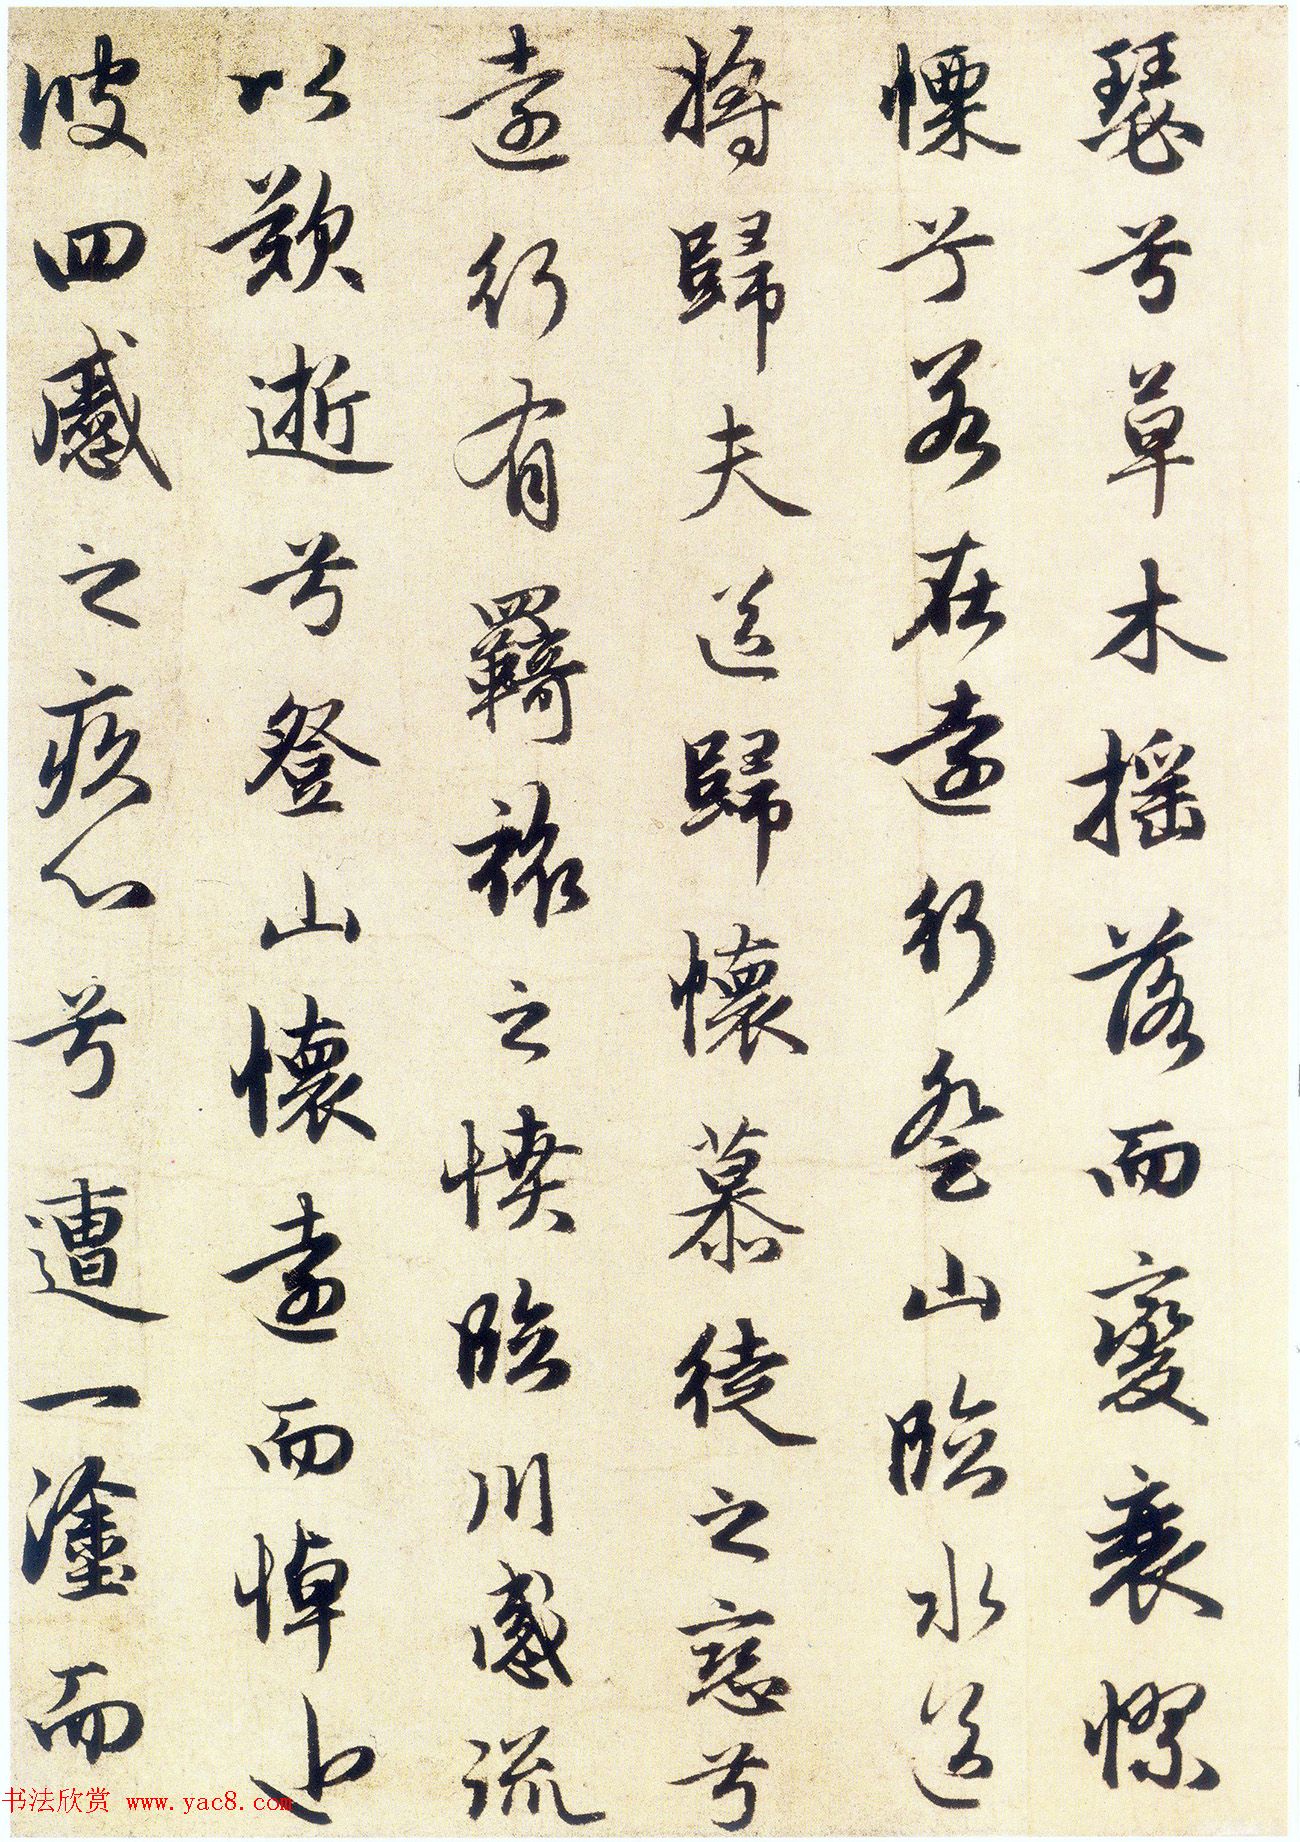 瑟兮草木搖落而變衰憭
慄兮若在遠行登山臨水送
將歸夫送歸懷慕徒之戀兮
遠行有羈旅之憤臨川感流
以歎逝兮登山懷遠而悼近
彼四慼之疚心兮遭一塗而
书法欣赏 www.yac8.com